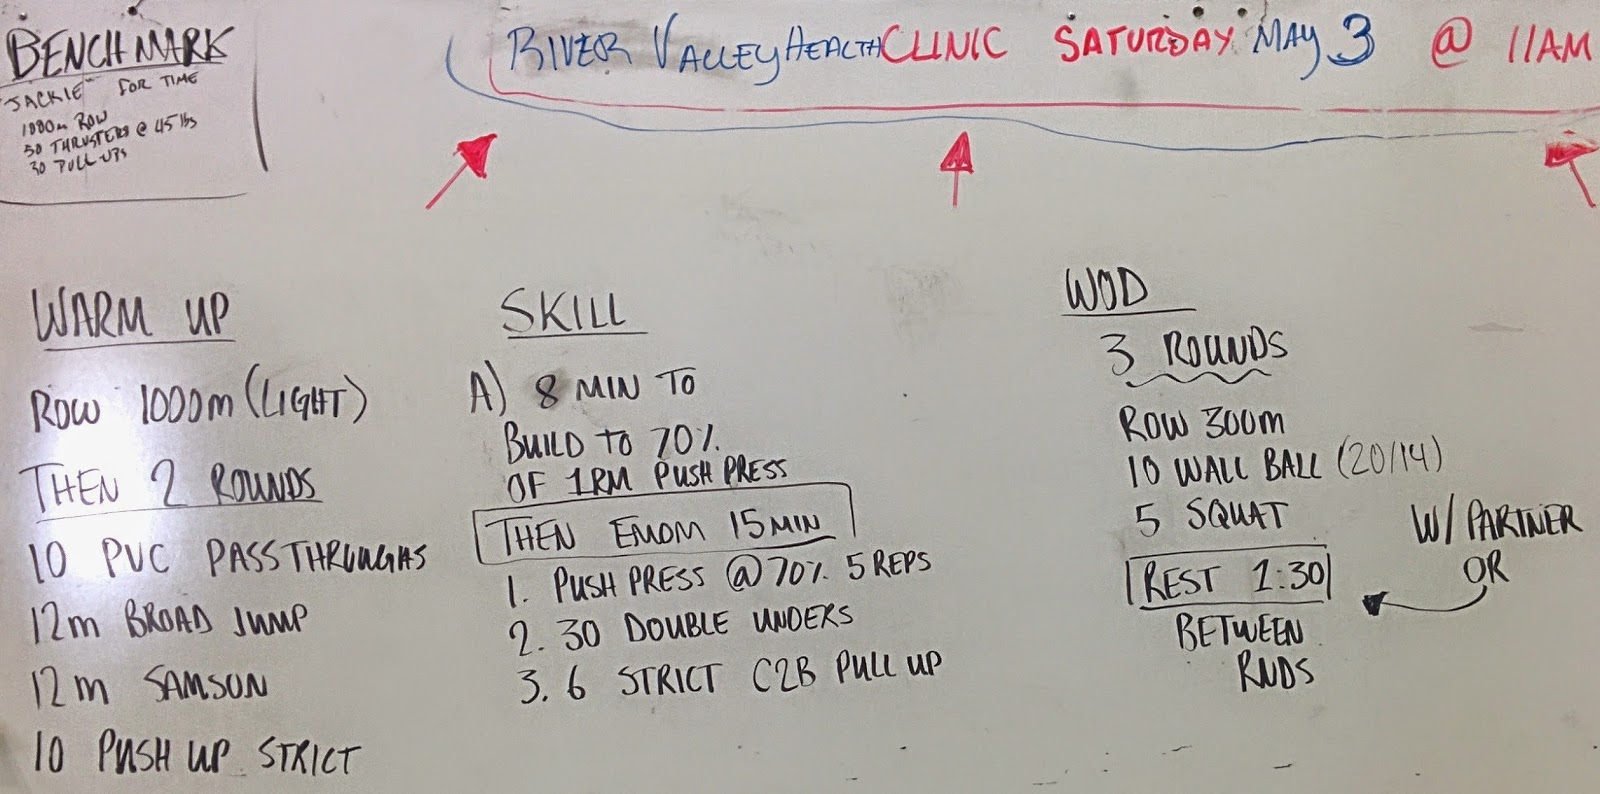 BENCHMARK
"JACKIE" FOR TIME
1000m ROW
50 THRUSTERS @ 45 lbs
30 PULL-UPS
RIVER VALLEY HEALTH CLINIC SATURDAY MAY 3 @ 11AM
WARM UP
ROW 1000m (LIGHT)
THEN 2 ROUNDS
10 PVC PASSTHROUGHS
12m BROAD JUMP
12m SAMSON
10 PUSH UP STRICT
SKILL
A) 8 MIN TO
BUILD TO 70%
OF 1RM PUSH PRESS
THEN EMOM 15 MIN
1. PUSH PRESS @ 70% 5 REPS
2. 30 DOUBLE UNDERS
3. 6 STRICT C2B PULL UP
WOD
3 ROUNDS
ROW 300m
10 WALL BALL (20/14)
5 SQUAT
REST 1:30
BETWEEN
RNDS
W/ PARTNER
OR